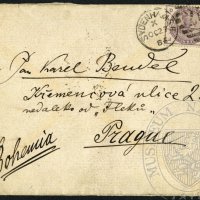 Pan Karel Bendel
Křemencová ulice 2
nedaleko od „Fleků"
Prague
Bohemia